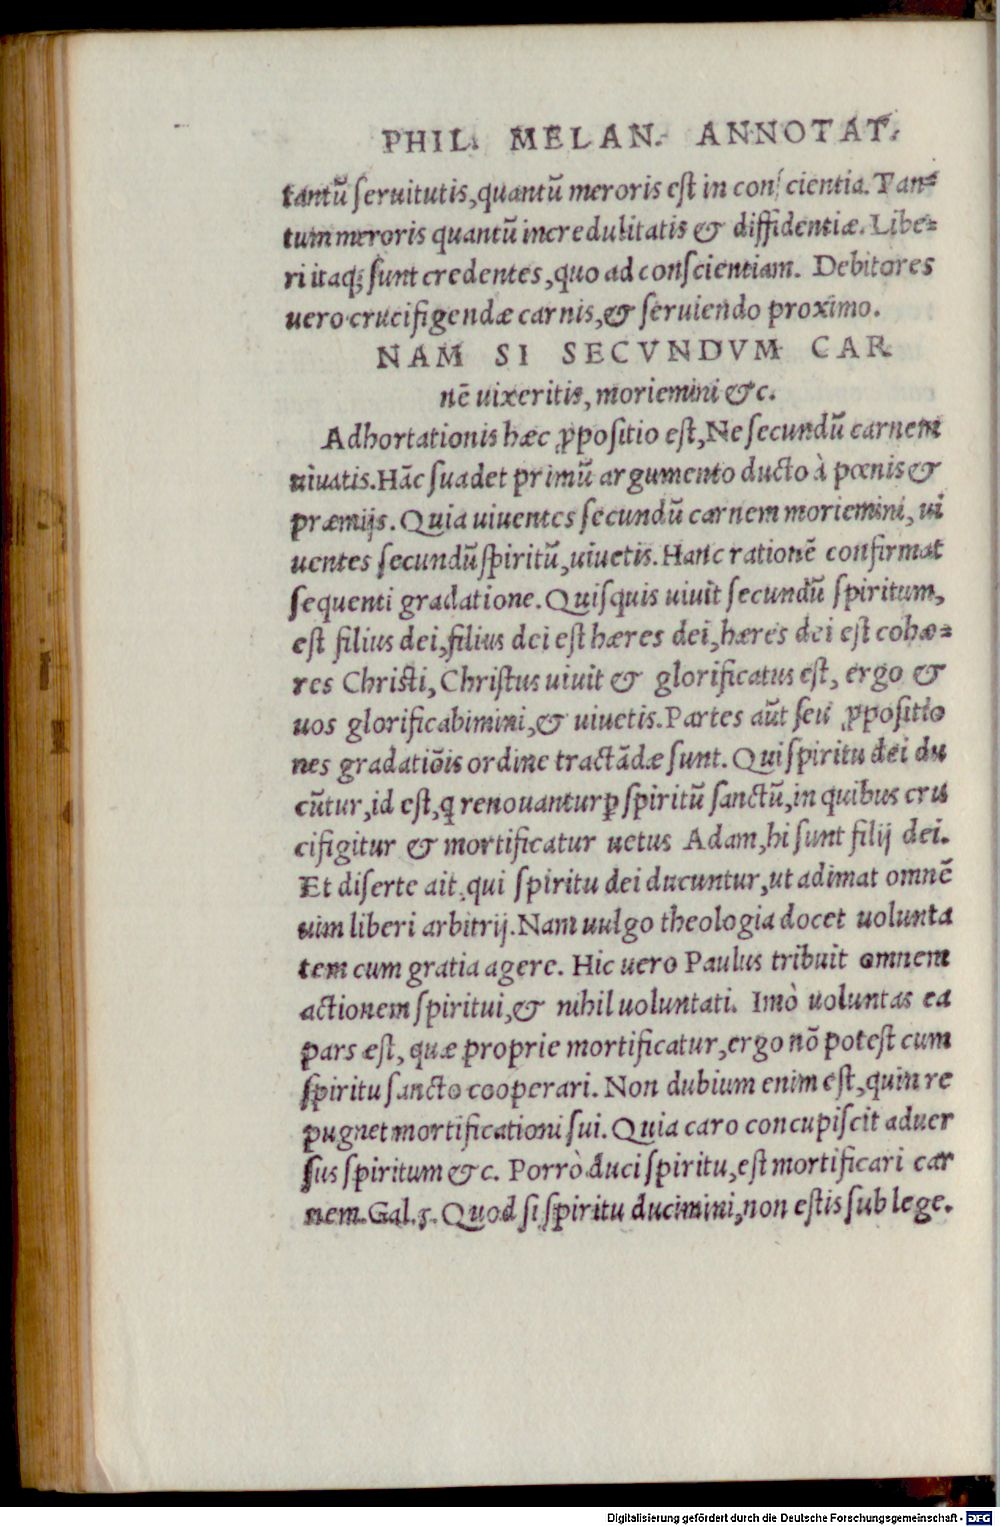 PHIL. MELAN. ANNOTAT.
tantū ſeruitutis, quantū meroris eſt in conſcientia. Tan⸗
tum meroris quantū incredulitatis & diffidentiæ. Libe⸗
ri itaq; ſunt credentes, quo ad conſcientiam. Debitores
uero crucifigendæ carnis, & ſeruiendo proximo.
NAM SI SECVNDVM CAR
nē uixeritis, moriemini &c.
Adhortationis hæc ꝓpoſitio eſt, Ne ſecundū carnem
uiuatis. Hāc ſuadet primū argumento ducto à pœnis &
præmijs. Quia uiuentes ſecundū carnem moriemini, ui
uentes ſecundū ſpiritū, uiuetis. Hanc rationē confirmat
ſequenti gradatione. Quiſquis uiuit ſecundū ſpiritum,
eſt filius dei, filius dei eſt hæres dei, hæres dei eſt cohæ⸗
res Chriſti, Chriſtus uiuit & glorificatus eſt, ergo &
uos glorificabimini, & uiuetis. Partes aūt ſeu ꝓpoſitio
nes gradatiōis ordine tractādæ ſunt. Qui ſpiritu dei du
cūtur, id eſt, q renouantur ꝑ ſpiritū ſanctū, in quibus cru
cifigitur & mortificatur uetus Adam, hi ſunt filij dei.
Et diſerte ait, qui ſpiritu dei ducuntur, ut adimat omnē
uim liberi arbitrij. Nam uulgo theologia docet uolunta
tem cum gratia agere. Hic uero Paulus tribuit omnem
actionem ſpiritui, & nihil uoluntati. Imò uoluntas ea
pars eſt, quæ proprie mortificatur, ergo nō poteſt cum
ſpiritu ſancto cooperari. Non dubium enim eſt, quin re
pugnet mortificationi ſui. Quia caro concupiſcit aduer
ſus ſpiritum &c. Porrò duci ſpiritu, eſt mortificari car
nem. Gal. 5. Quod ſi ſpiritu ducimini, non eſtis ſub lege.
Digitalisierung gefördert durch die Deutsche Forschungsgemeinschaft - DFG